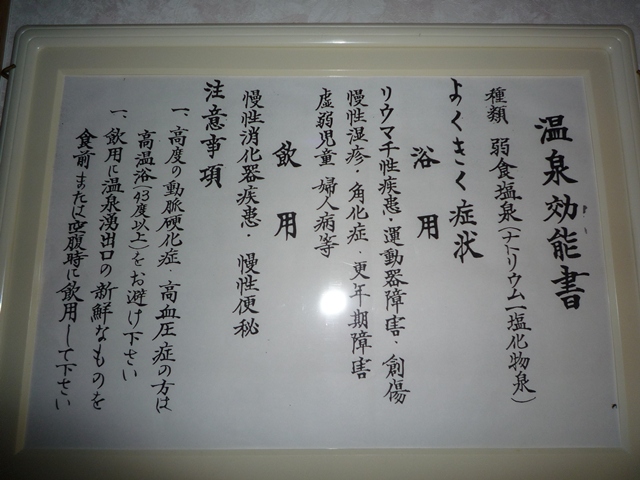 温泉効能書
種類 弱食塩泉(ナトリウム―塩化物泉)
よくきく症状
浴用
リウマチ性疾患・運動器障害・創傷
慢性湿疹・角化症・更年期障害
虚弱児童 婦人病等
飲用
慢性消化器疾患・慢性便秘
注意事項
一、高度の動脈硬化症・高血圧症の方は
高温浴(43度以上)をお避け下さい
一、飲用に温泉湧出口の新鮮なものを
食前または空腹時に飲用して下さい